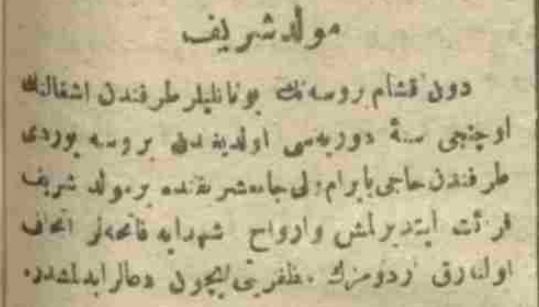 مولد شريف
دون اقشام بروسه‌نك يونانليلر طرفندن اشغالنك
اوچنجى سنۀ دوريه‌سى اولديغندن بروسه يوردى
طرفندن حاجى بايرام ولى جامع شريفنده بر مولد شريف
قرائت ايتديرلمش وارواح شهدايه فاتحه‌لر اتحاف
اولنارق اردومزك مظفريتى ايچون دعالر ايدلمشدر.